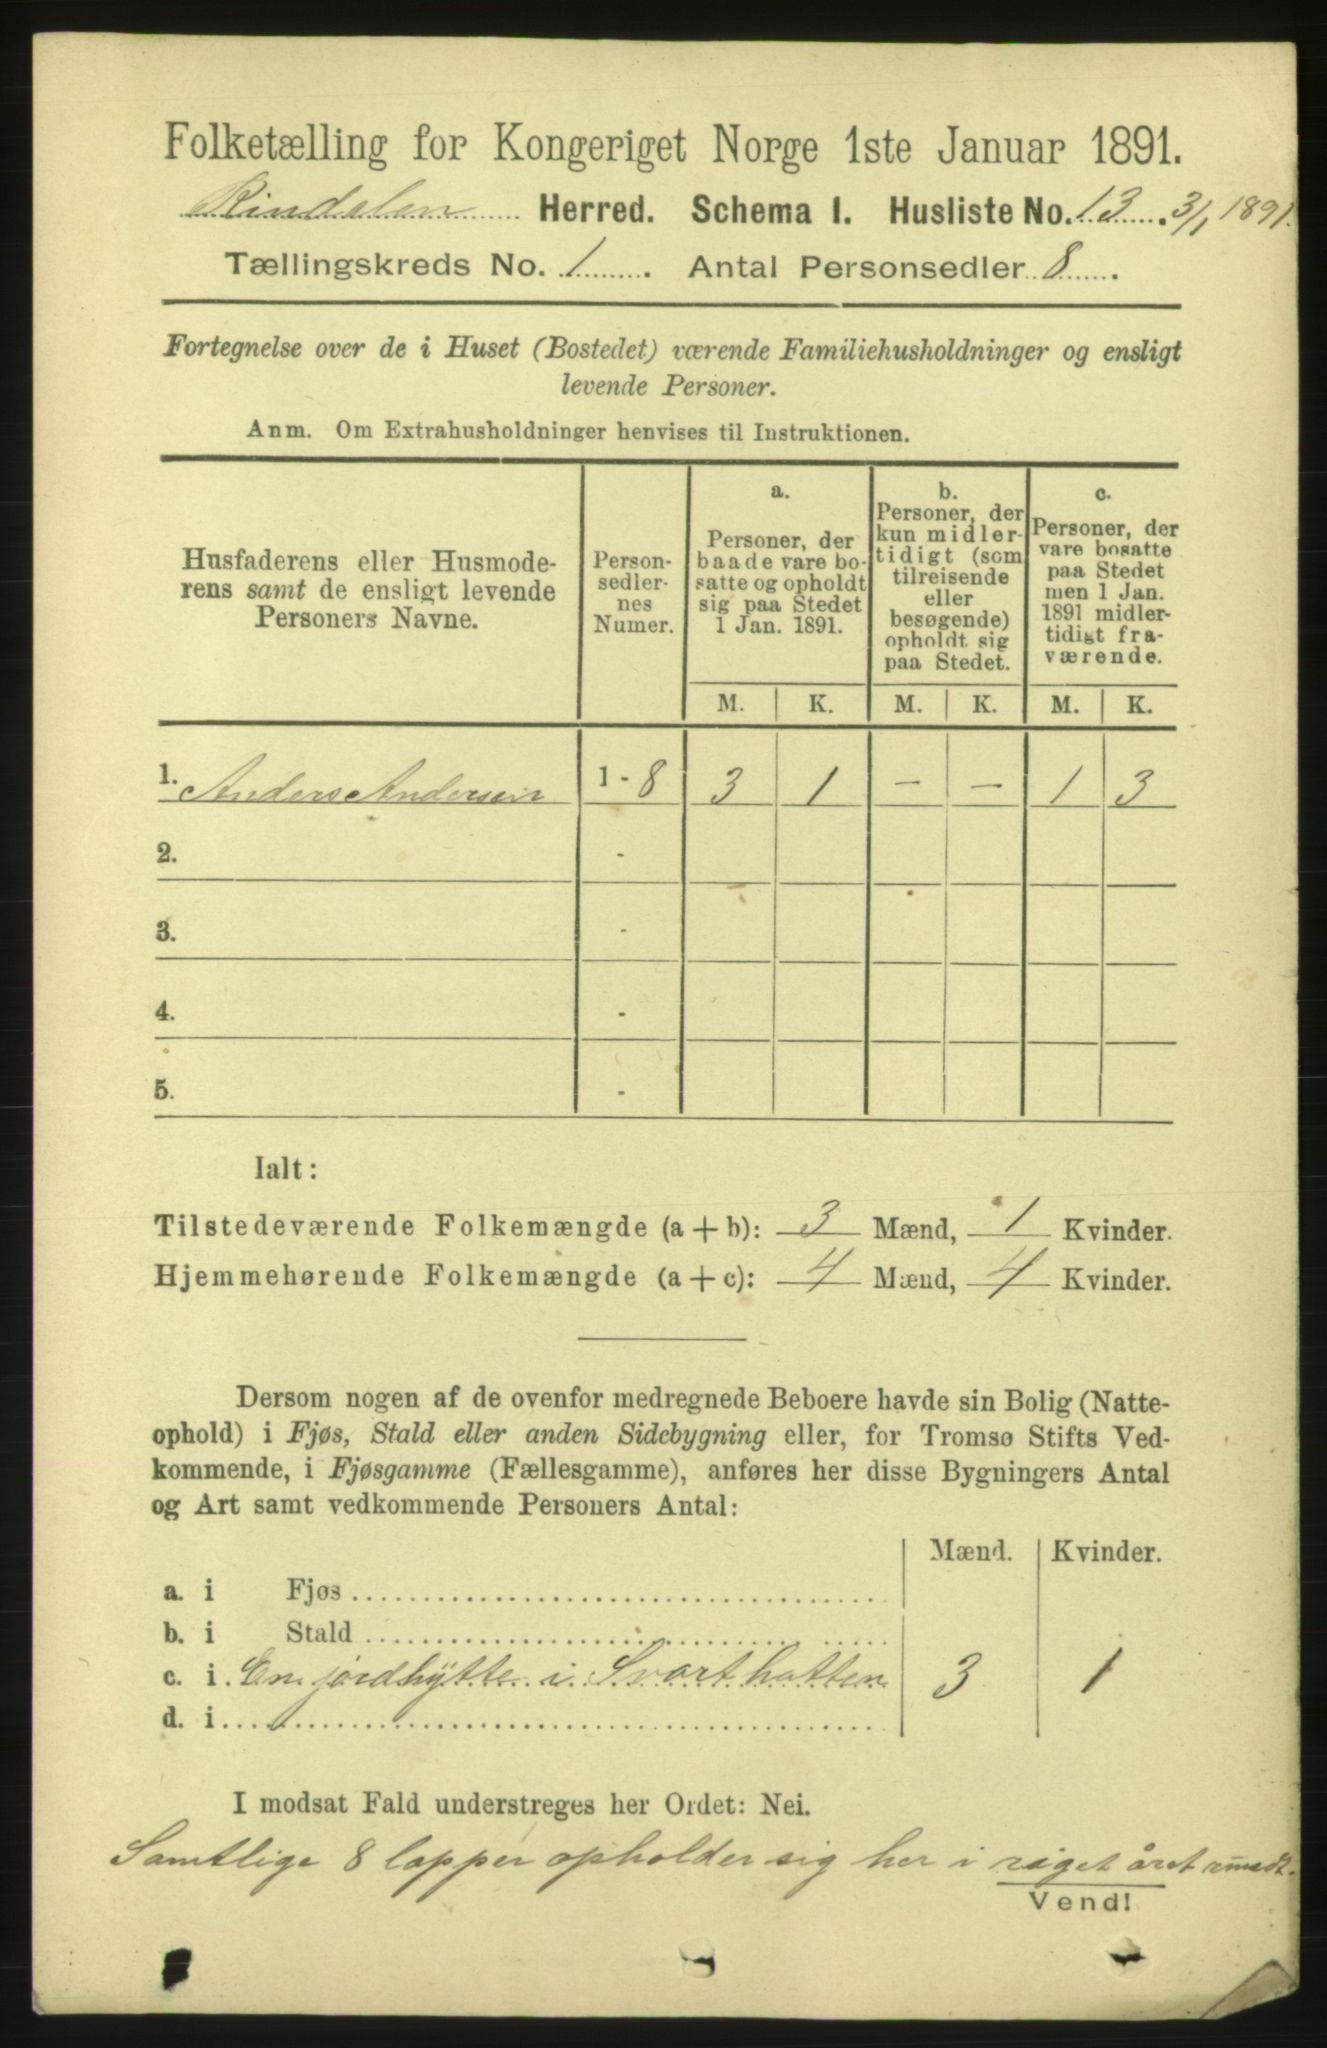 Folketælling for Kongeriget Norge 1ste Januar 1891.
Rindalen Herred. Schema I. Husliste No. 13. 3/1 1891.
Tællingskreds No. 1. Antal Personsedler 8.
Fortegnelse over de i Huset (Bostedet) værende Familiehusholdninger og ensligt
levende Personer.
Anm. Om Extrahusholdninger henvises til Instruktionen.
Husfaderens eller Husmode-
rens samt de ensligt levende
Personers Navne.
Person-
sedler-
nes
Numer.
a.
Personer, der
baade vare bo-
satte og opholdt
sig paa Stedet
1 Jan. 1891.
b.
Personer, der
kun midler-
tidigt (som
tilreisende
eller
besøgende)
opholdt sig
paa Stedet.
c.
Personer, der
vare bosatte
paa Stedet
men 1 Jan.
1891 midler-
tidigt fra-
værende.
M. K. M. K. M. K.
1. Anders Andersen 1 - 8 3 1 - - 1 3
2. -
3. -
4. -
5. -
Ialt:
Tilstedeværende Folkemængde (a + b): 3 Mænd, 1 Kvinder.
Hjemmehørende Folkemængde (a + c): 4 Mænd, 4 Kvinder.
Dersom nogen af de ovenfor medregnede Beboere havde sin Bolig (Natte-
ophold) i Fjøs, Stald eller anden Sidebygning eller, for Tromsø Stifts Ved-
kommende, i Fjøsgamme (Fællesgamme), anføres her disse Bygningers Antal
og Art samt vedkommende Personers Antal:
Mænd. Kvinder.
a. i Fjøs
b. i Stald
c. i En jordhytte i Svarthatten 3 1
d. i
I modsat Fald understreges her Ordet: Nei.
Samtlige 8 lapper opholder sig her i riget året rundt.
Vend!